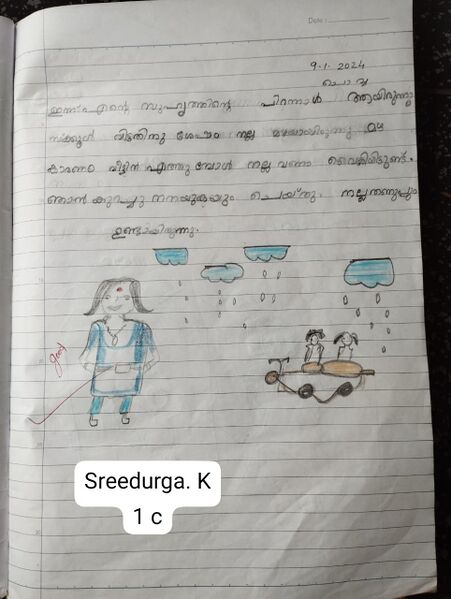 Date :
9.1.2024
ചൊവ്വ
ഇന്ന് എന്റെ സുഹൃത്തിന്റെ പിറന്നാൾ ആയിരുന്നു
സ്ക്കൂൾ വിട്ടതിനു ശേഷം നല്ല മഴയായിരുന്നു മഴ
കാരണം വീട്ടിൽ എത്തുമ്പോൾ നല്ല വണ്ണം വൈകിയിട്ടുണ്ട്.
ഞാൻ കുറച്ചു നനയുകയും ചെയ്തു. നല്ല തണുപ്പും
ഉണ്ടായിരുന്നു.
good
Sreedurga. K
1 c